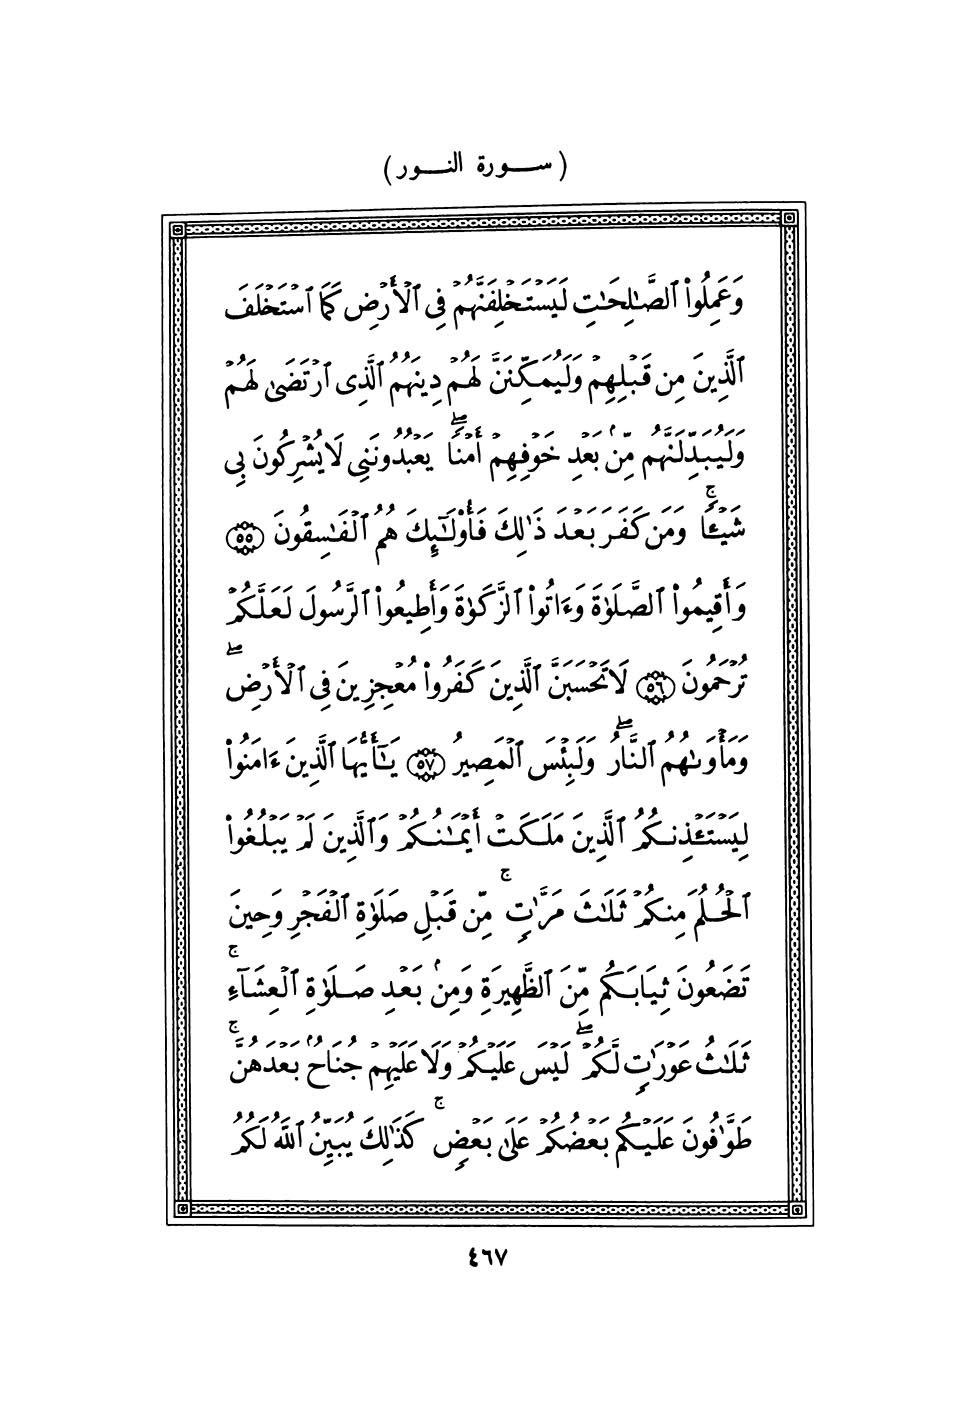 ( سـورة النـور )
وَعَمِلُوا۟ ٱلصَّـٰلِحَـٰتِ لَيَسْتَخْلِفَنَّهُمْ فِى ٱلْأَرْضِ كَمَا ٱسْتَخْلَفَ
ٱلَّذِينَ مِن قَبْلِهِمْ وَلَيُمَكِّنَنَّ لَهُمْ دِينَهُمُ ٱلَّذِى ٱرْتَضَىٰ لَهُمْ
وَلَيُبَدِّلَنَّهُم مِّنۢ بَعْدِ خَوْفِهِمْ أَمْنًا ۖ يَعْبُدُونَنِى لَا يُشْرِكُونَ بِى
شَيْـًٔا ۚ وَمَن كَفَرَ بَعْدَ ذَٰلِكَ فَأُو۟لَـٰٓئِكَ هُمُ ٱلْفَـٰسِقُونَ ٥٥
وَأَقِيمُوا۟ ٱلصَّلَوٰةَ وَءَاتُوا۟ ٱلزَّكَوٰةَ وَأَطِيعُوا۟ ٱلرَّسُولَ لَعَلَّكُمْ
تُرْحَمُونَ ٥٦ لَا تَحْسَبَنَّ ٱلَّذِينَ كَفَرُوا۟ مُعْجِزِينَ فِى ٱلْأَرْضِ ۚ
وَمَأْوَىٰهُمُ ٱلنَّارُ ۖ وَلَبِئْسَ ٱلْمَصِيرُ ٥٧ يَـٰٓأَيُّهَا ٱلَّذِينَ ءَامَنُوا۟
لِيَسْتَـْٔذِنكُمُ ٱلَّذِينَ مَلَكَتْ أَيْمَـٰنُكُمْ وَٱلَّذِينَ لَمْ يَبْلُغُوا۟
ٱلْحُلُمَ مِنكُمْ ثَلَـٰثَ مَرَّٰتٍ ۚ مِّن قَبْلِ صَلَوٰةِ ٱلْفَجْرِ وَحِينَ
تَضَعُونَ ثِيَابَكُم مِّنَ ٱلظَّهِيرَةِ وَمِنۢ بَعْدِ صَلَوٰةِ ٱلْعِشَآءِ ۚ
ثَلَـٰثُ عَوْرَٰتٍ لَّكُمْ ۖ لَيْسَ عَلَيْكُمْ وَلَا عَلَيْهِمْ جُنَاحٌۢ بَعْدَهُنَّ ۚ
طَوَّٰفُونَ عَلَيْكُم بَعْضُكُمْ عَلَىٰ بَعْضٍ ۚ كَذَٰلِكَ يُبَيِّنُ ٱللَّهُ لَكُمُ
٤٦٧